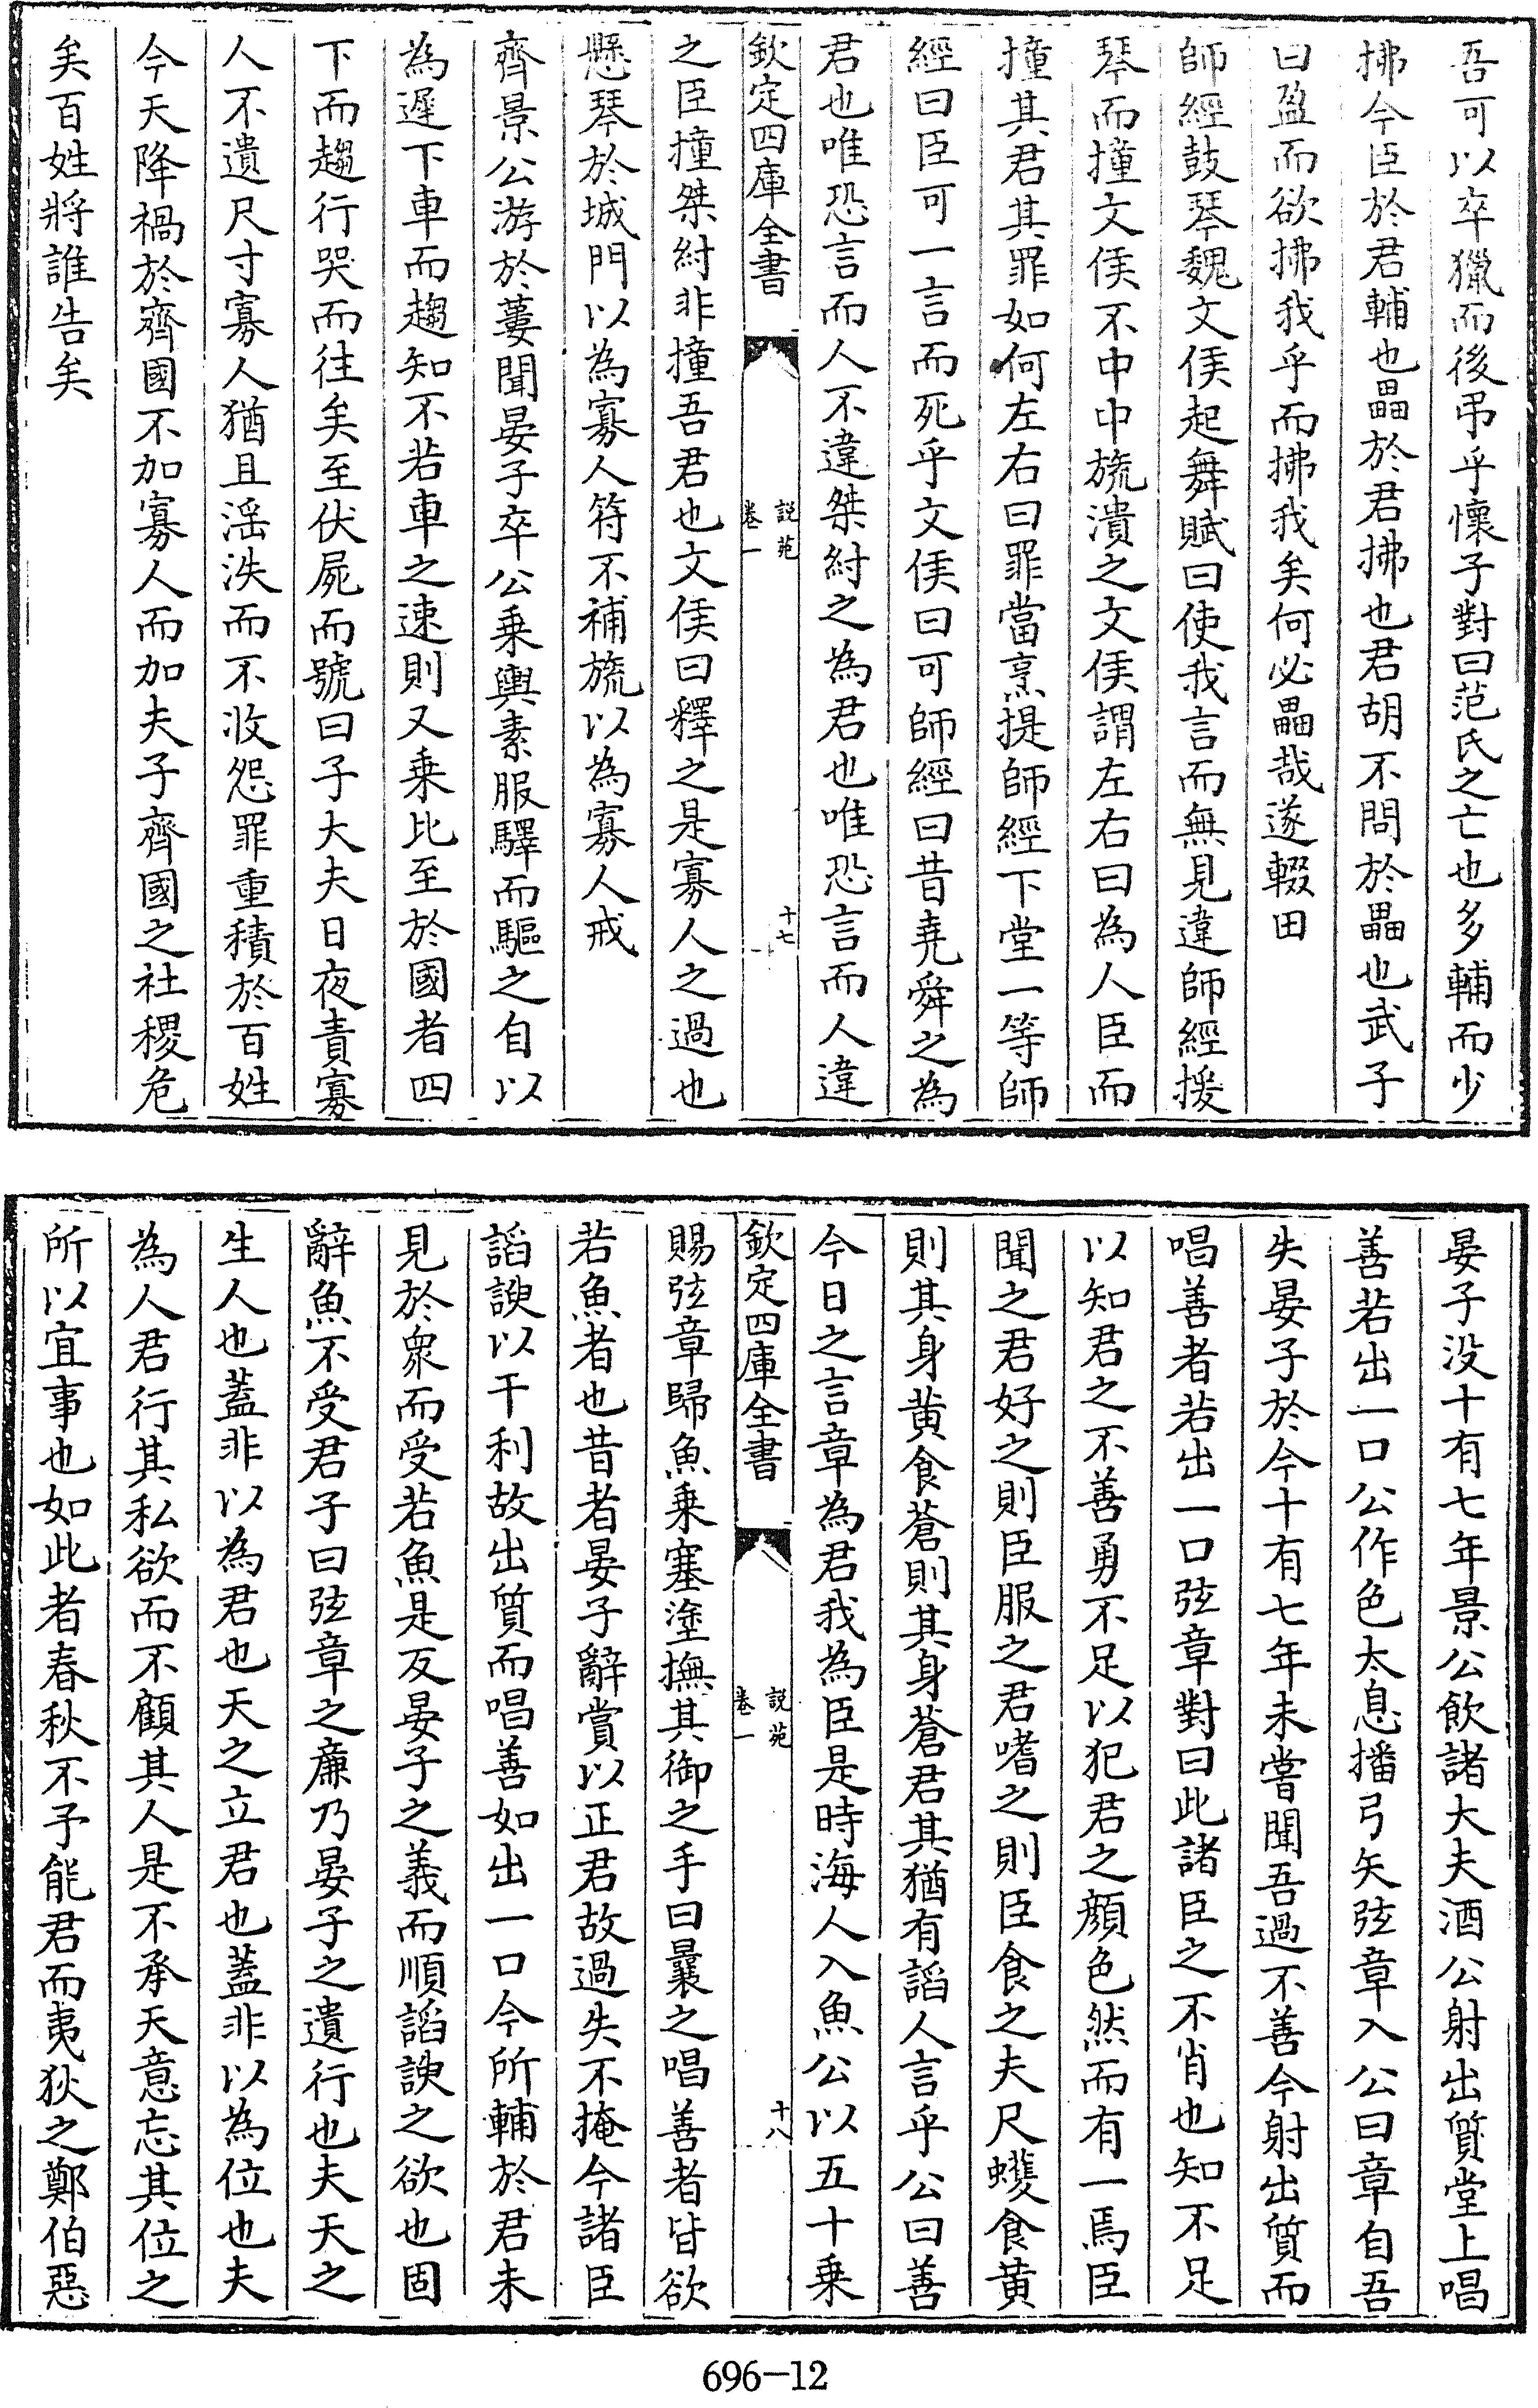 吾可以卒獵而後弔乎懷子對曰范氏之亡也多輔而少
拂今臣於君輔也畾於君拂也君胡不問於畾也武子
曰盈而欲拂我乎而拂我矣何必畾哉遂輟田
師經鼓琴魏文侯起舞賦曰使我言而無見違師經援
琴而撞文侯不中中旒潰之文侯謂左右曰為人臣而
撞其君其罪如何左右曰罪當烹提師經下堂一等師
經曰臣可一言而死乎文侯曰可師經曰昔堯舜之為
君也唯恐言而人不違桀紂之為君也唯恐言而人違
欽定四庫全書 說苑 卷一 十七
之臣撞桀紂非撞吾君也文侯曰釋之是寡人之過也
懸琴於城門以為寡人符不補旒以為寡人戒
齊景公游於蔞聞晏子卒公乗輿素服驛而驅之自以
為遲下車而趨知不若車之速則又乗比至於國者四
下而趨行哭而往矣至伏屍而號曰子大夫日夜責寡
人不遺尺寸寡人猶且淫泆而不收怨罪重積於百姓
今天降禍於齊國不加寡人而加夫子齊國之社稷危
矣百姓將誰告矣
晏子没十有七年景公飲諸大夫酒公射出質堂上唱
善若出一口公作色太息播弓矢弦章入公曰章自吾
失晏子於今十有七年未嘗聞吾過不善今射出質而
唱善者若出一口弦章對曰此諸臣之不肖也知不足
以知君之不善勇不足以犯君之顔色然而有一焉臣
聞之君好之則臣服之君嗜之則臣食之夫尺蠖食黄
則其身黄食蒼則其身蒼君其猶有謟人言乎公曰善
今日之言章為君我為臣是時海人入魚公以五十乗
欽定四庫全書 說苑 卷一 十八
賜弦章歸魚乗塞塗撫其御之手曰曩之唱善者皆欲
若魚者也昔者晏子辭賞以正君故過失不掩今諸臣
謟諛以干利故出質而唱善如出一口今所輔於君未
見於衆而受若魚是反晏子之義而順謟諛之欲也固
辭魚不受君子曰弦章之亷乃晏子之遺行也夫天之
生人也蓋非以為君也天之立君也蓋非以為位也夫
為人君行其私欲而不顧其人是不承天意忘其位之
所以宜事也如此者春秋不予能君而夷狄之鄭伯惡
696-12